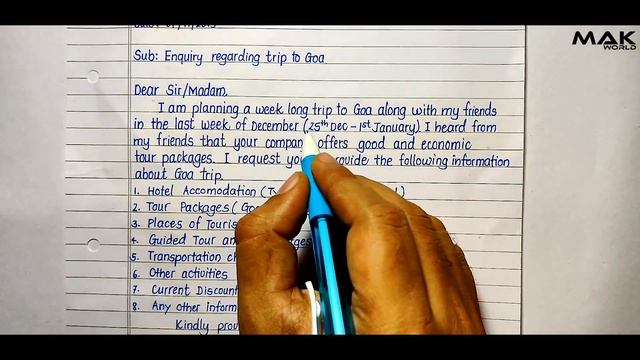 MAK
WORLD
Sub: Enquiry regarding trip to Goa
Dear Sir/Madam,
I am planning a week long trip to Goa along with my friends
in the last week of December (25th Dec - 1st January) I heard from
my friends that your compan offers good and economic
tour packages. I request yo provide the following information
about Goa trip.
1. Hotel Accomodation (
2. Tour Packages (
3. Places of Touris
4. Guided Tour an
5. Transportation ch
6. Other activities
7. Current Discount
8. Any other inform
Kindly prov